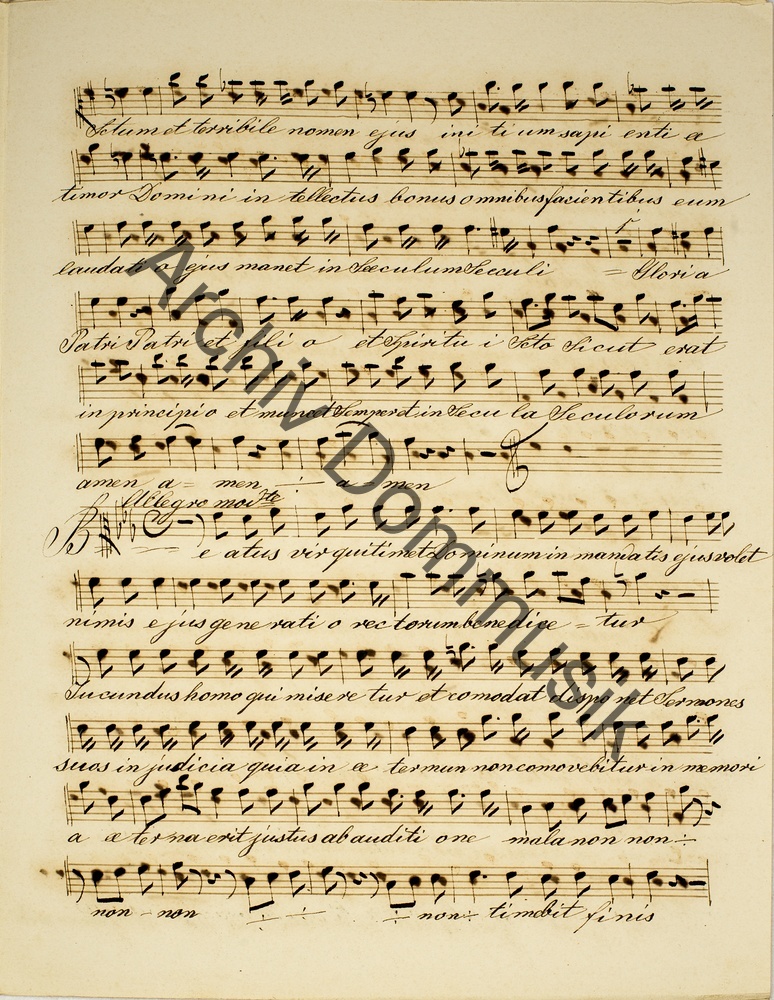 Sctum et terribile nomen ejus ini ti um sapi enti æ
timor Domini in tellectus bonus omnibus facientibus eum
laudati o ejus manet in Sæculum Seculi = Glori a
Patri Patri et fili o et Spiritu i Scto Sicut erat
in principi o et nunc et Semper et in Secu la Seculorum
amen a = men ÷ a - men
Allegro modte
B e atus vir qui timet Dominum in mandatis ejus volet
nimis ejus gene rati o rectorum benedice = tur
Jucundus homo qui misere tur et comodat dispo net Sermones
suos in judicia quia in æ termun non comovebitur in memori
a æ terna erit justus ab auditi one mala non non ÷
non - non ÷ ÷ ÷ non ÷ timebit finis
Archiv Dommusik